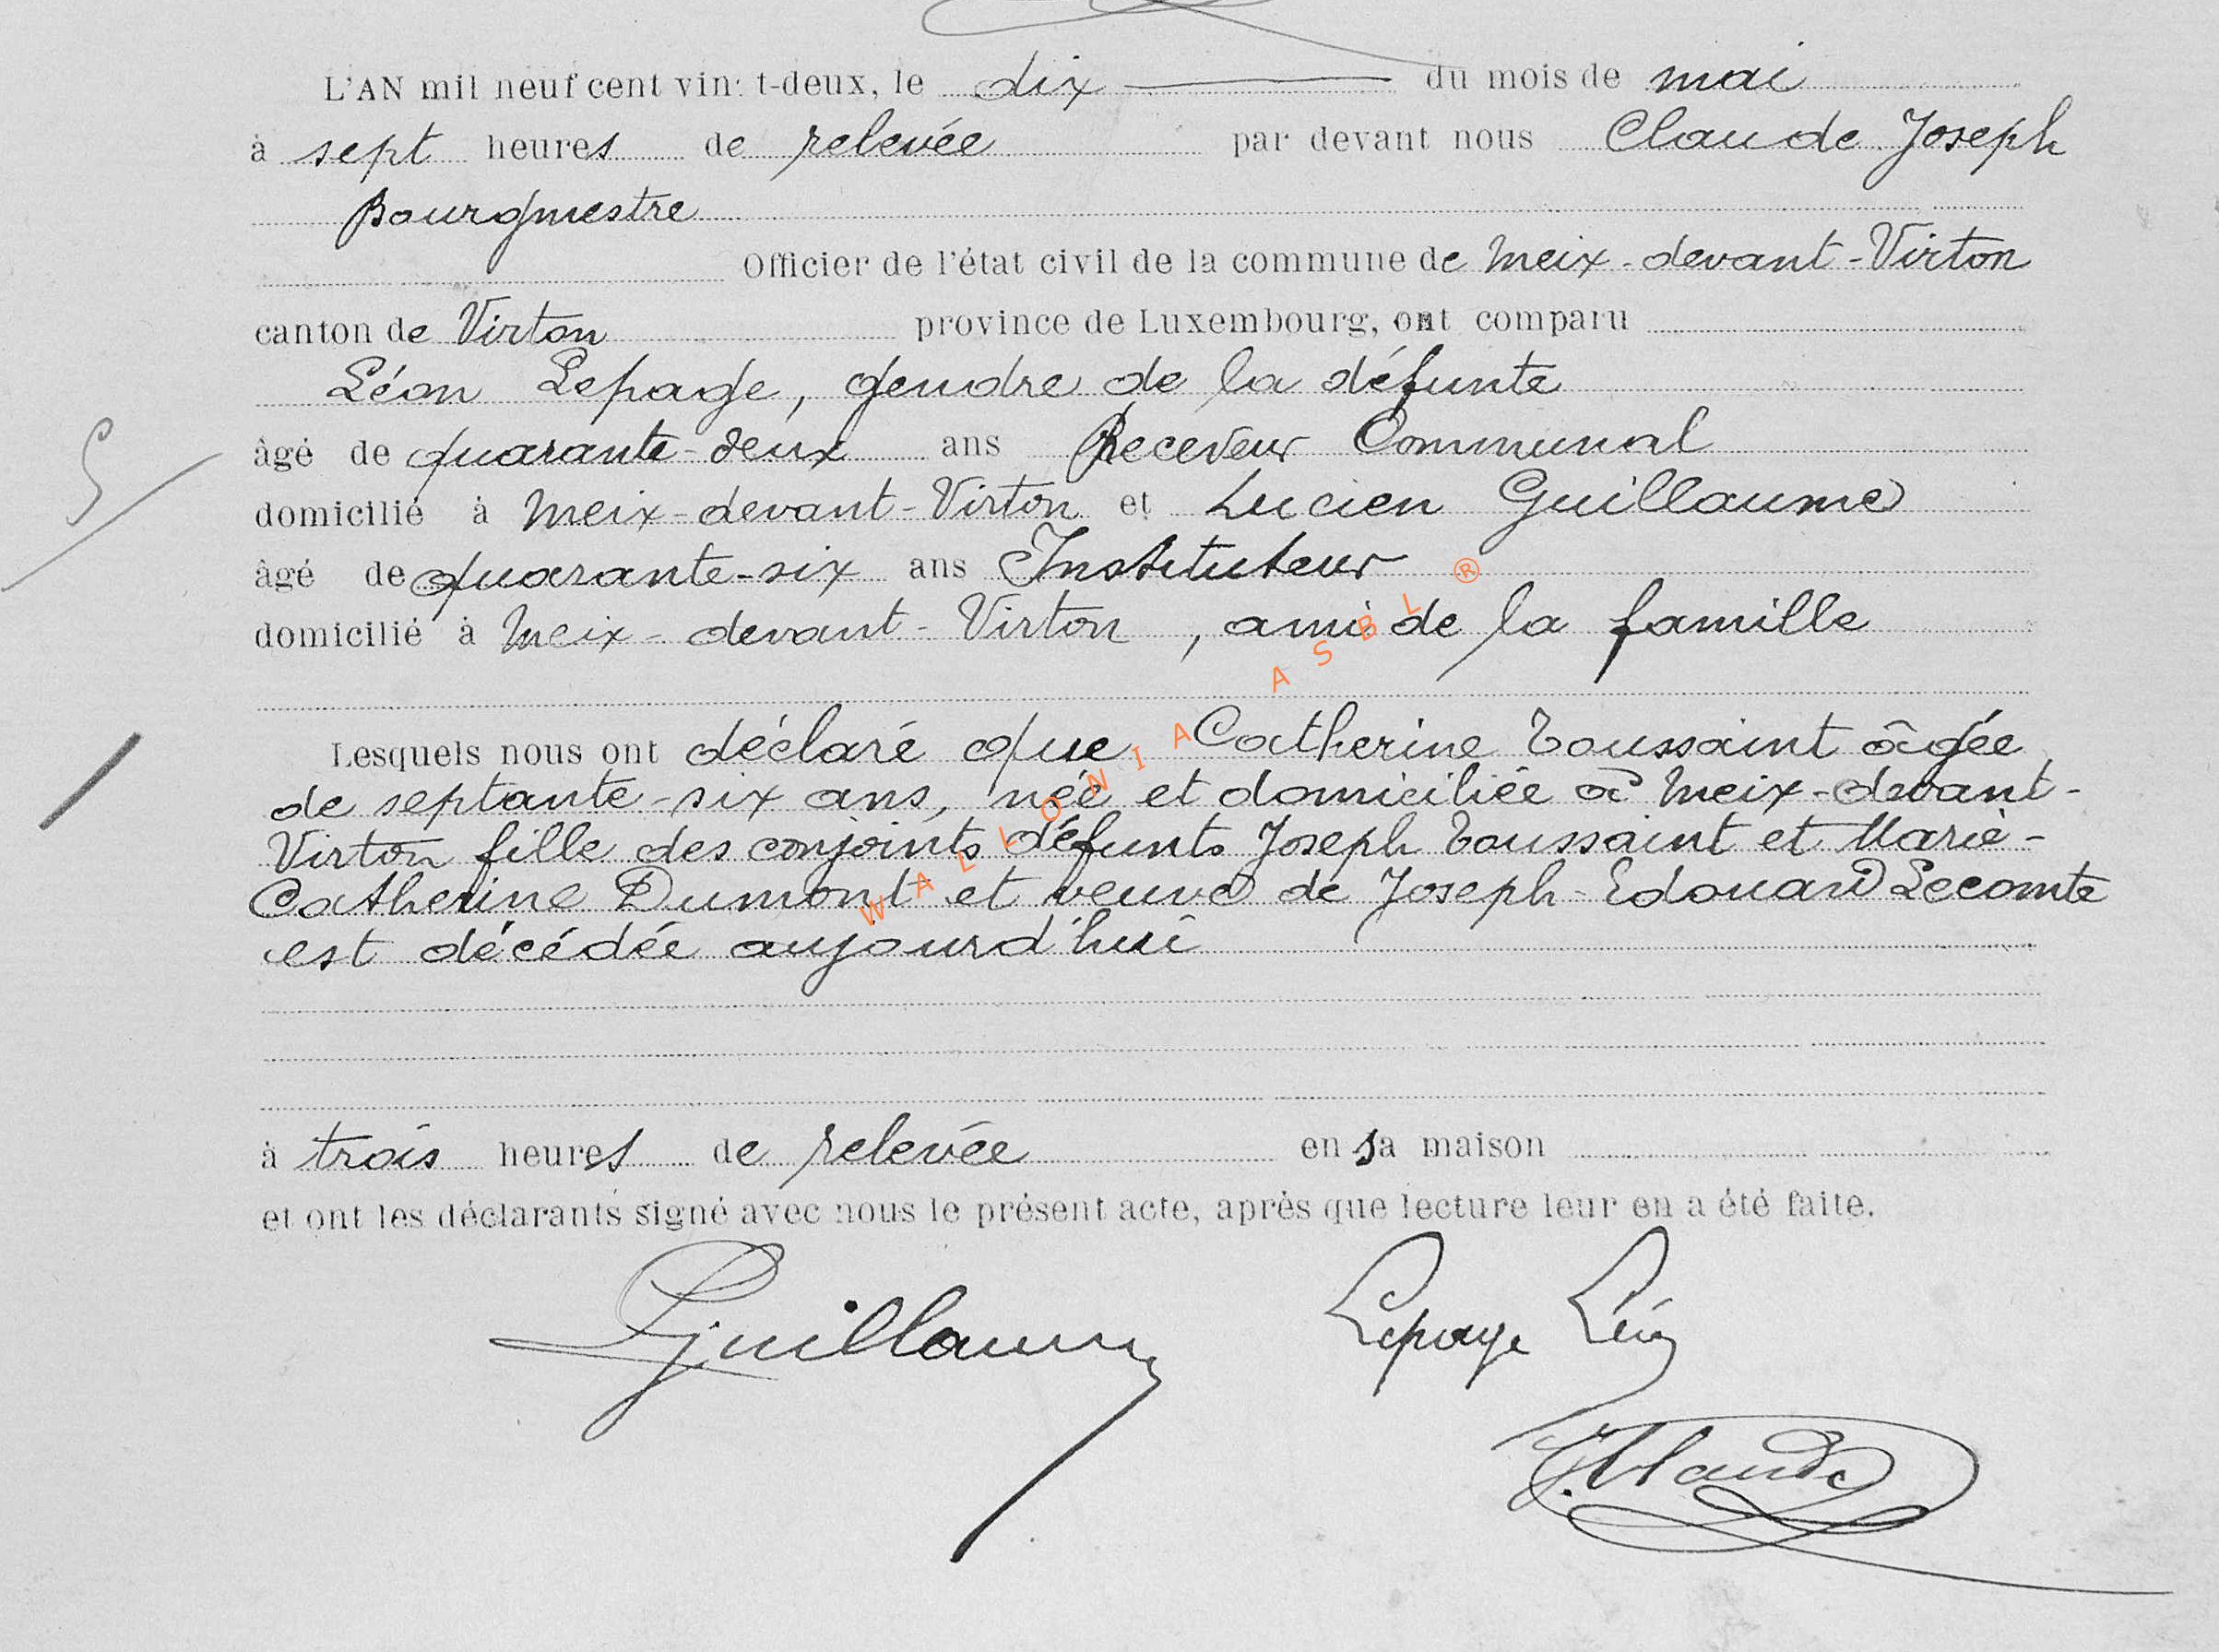 L'AN mil neuf cent vin t-deux, le dix du mois de mai
à sept heures de relevée par devant nous Claude Joseph
Bourgmestre
Officier de l'état civil de la commune de Meix-devant-Virton
canton de Virton province de Luxembourg, ont comparu
Léon Lepage, gendre de la défunte
âgé de quarante-deux ans Receveur Communal
domicilié à Meix-devant-Virton et Lucien Guillaume
âgé de quarante-six ans Instituteur
domicilié à Meix-devant-Virton, ami de la famille
Lesquels nous ont déclaré que Catherine Toussaint âgée
de septante-six ans, née et domiciliée à Meix-devant-
Virton fille des conjoints défunts Joseph Toussaint et Marie-
Catherine Dumont et veuve de Joseph-Edouard Lecomte
est décédée aujourd'hui
à trois heures de relevée en sa maison
et ont les déclarants signé avec nous le présent acte, après que lecture leur en a été faite.
Guillaume Lepage Léon
J. Claude
WALLONIA ASBL ®
5